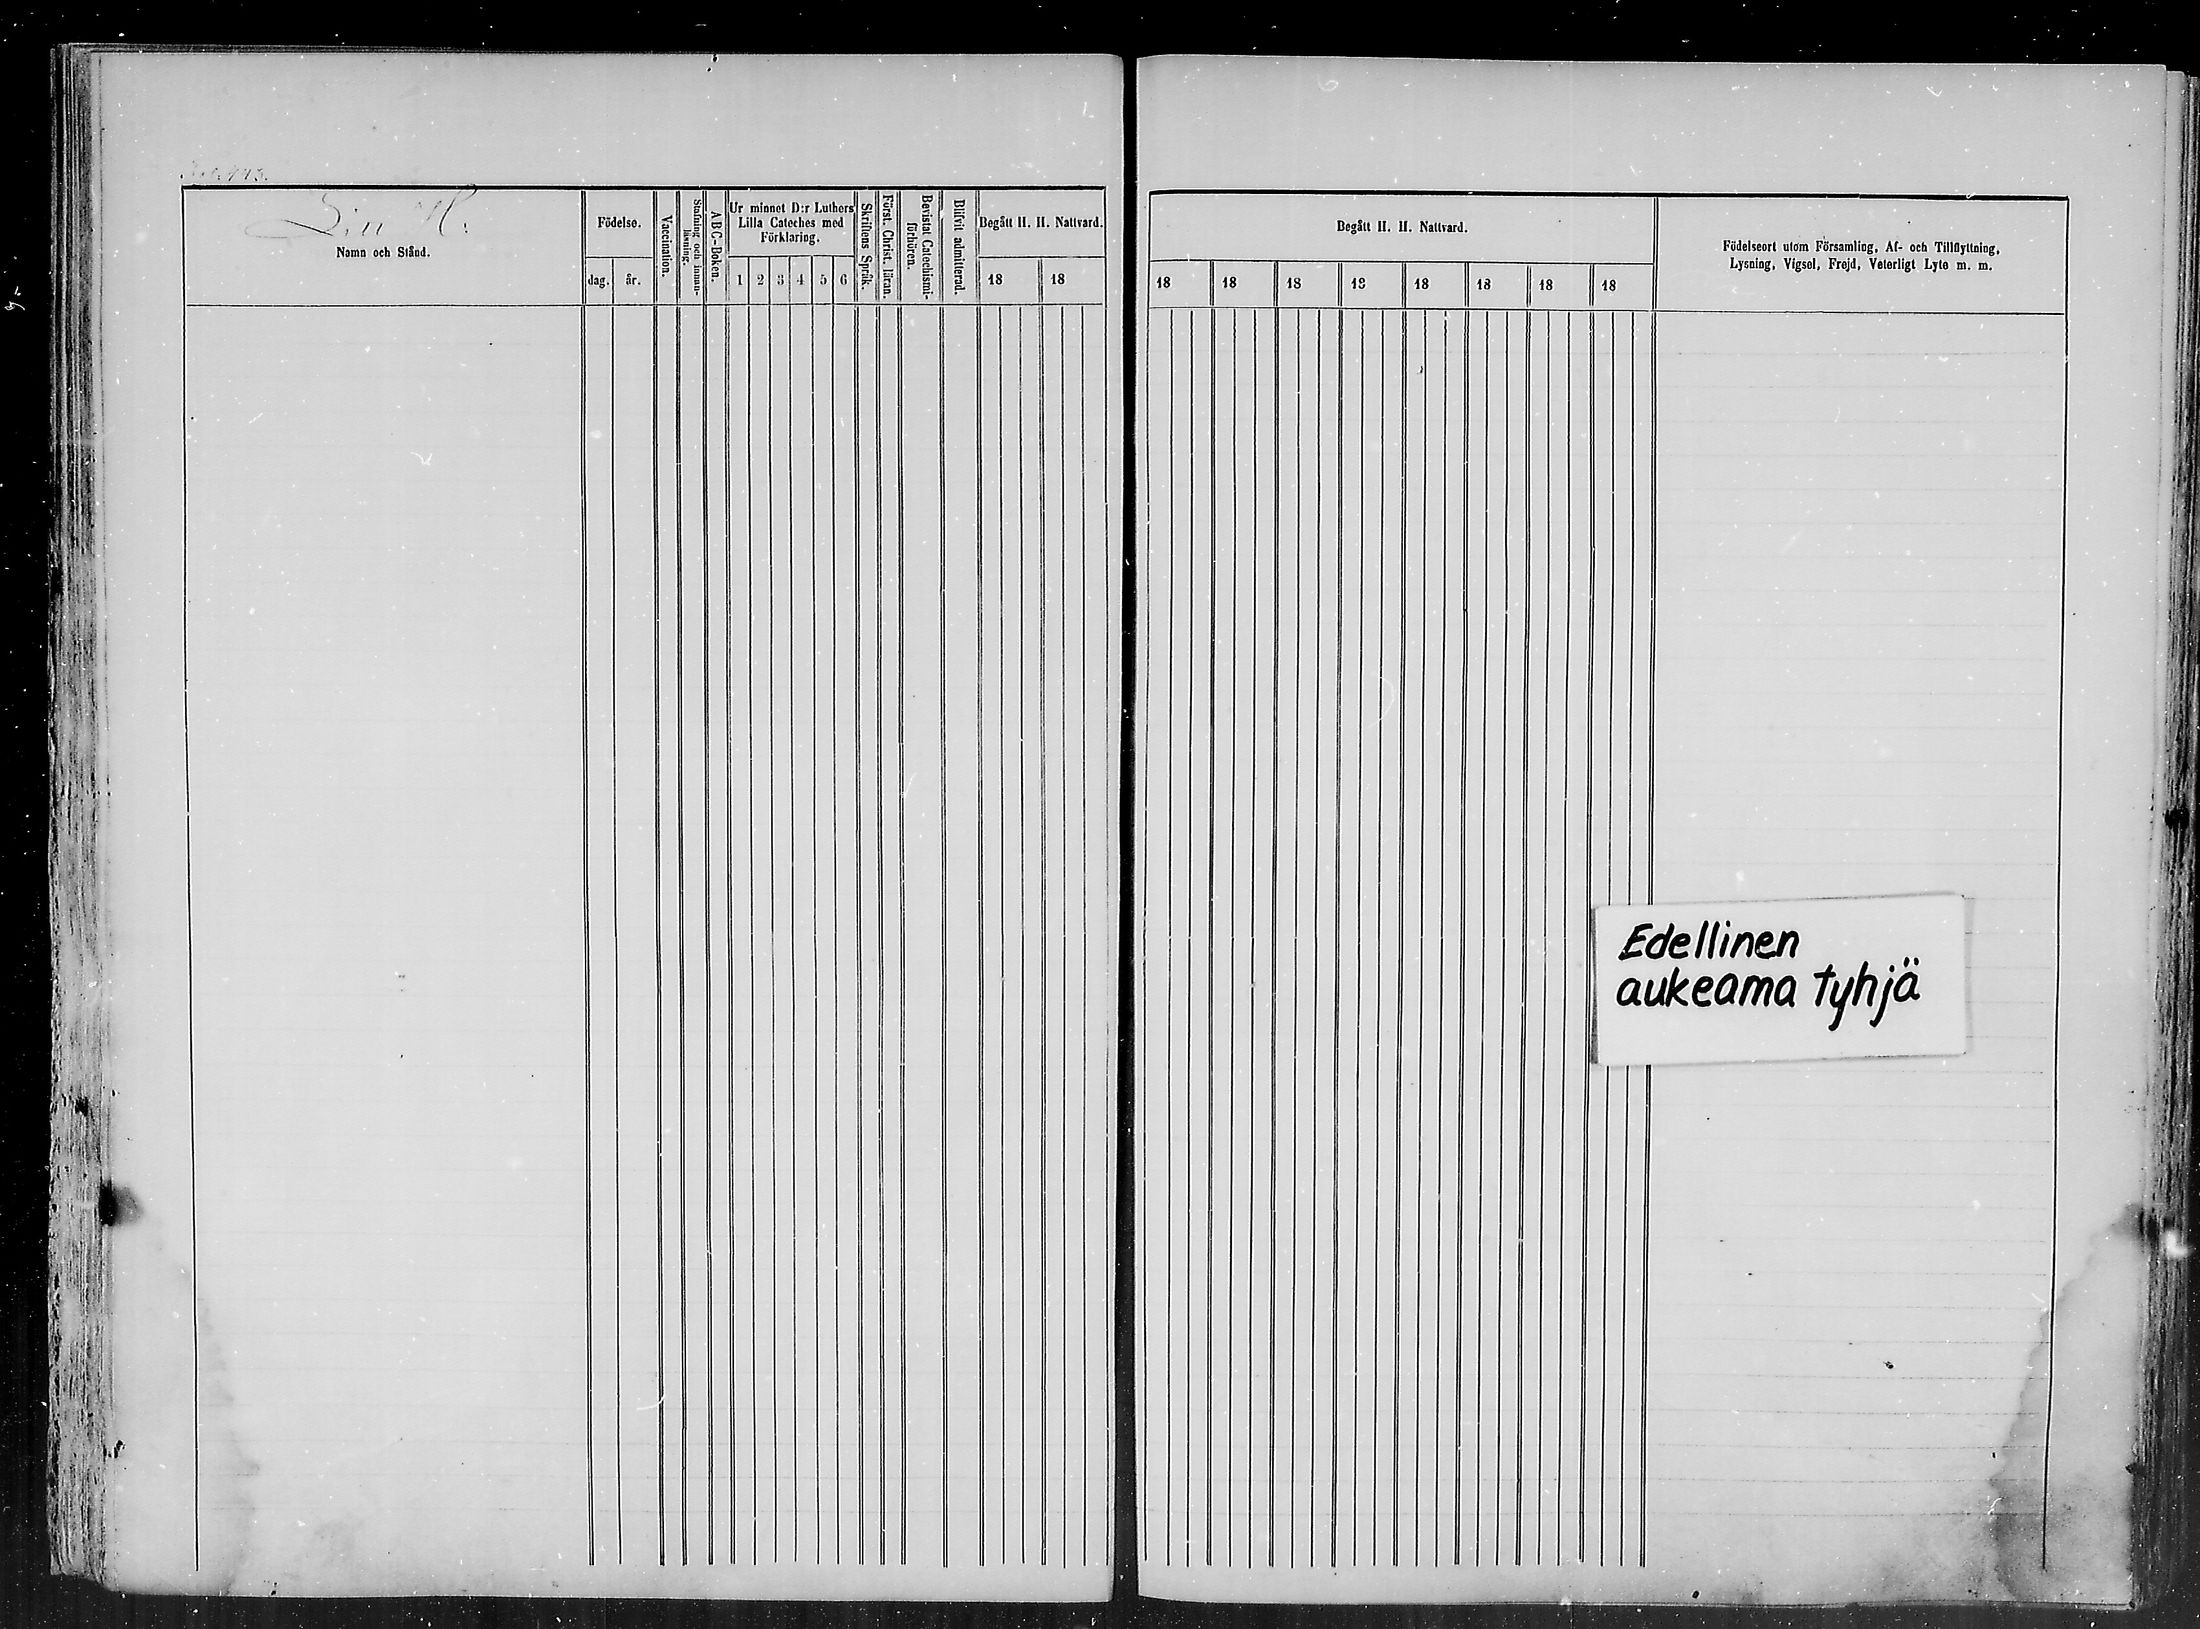 Lill H.
Namn och Stånd.
Födelse.
dag. år.
Vaccination.
Stafning och innan-
läsning.
ABC-Boken.
Ur minnet D:r Luthers
Lilla Cateches med
Förklaring.
1 2 3 4 5 6
Skriftens Språk.
Först. Christ. läran.
Bevistat Catechismi-
förhören.
Blifvit admitterad.
Begått H. H. Nattvard.
18 18
Begått H. H. Nattvard.
18 18 18 18 18 18 18 18
Födelseort utom Församling, Af- och Tillflyttning,
Lysning, Vigsel, Frejd, Veterligt Lyte m. m.
Edellinen
aukeama tyhjä